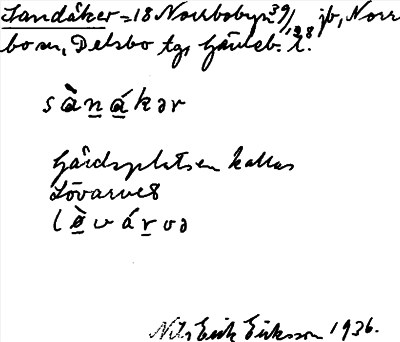 Sandåker = 18 Norrbobyn 39/128 jb, Norr
bo sn, Delsbo tg, Gävleb. l.
sànákər
Gårdsplatsen kallas
Lövarvet
lø̀várvə
Nils Erik Eriksson 1936.